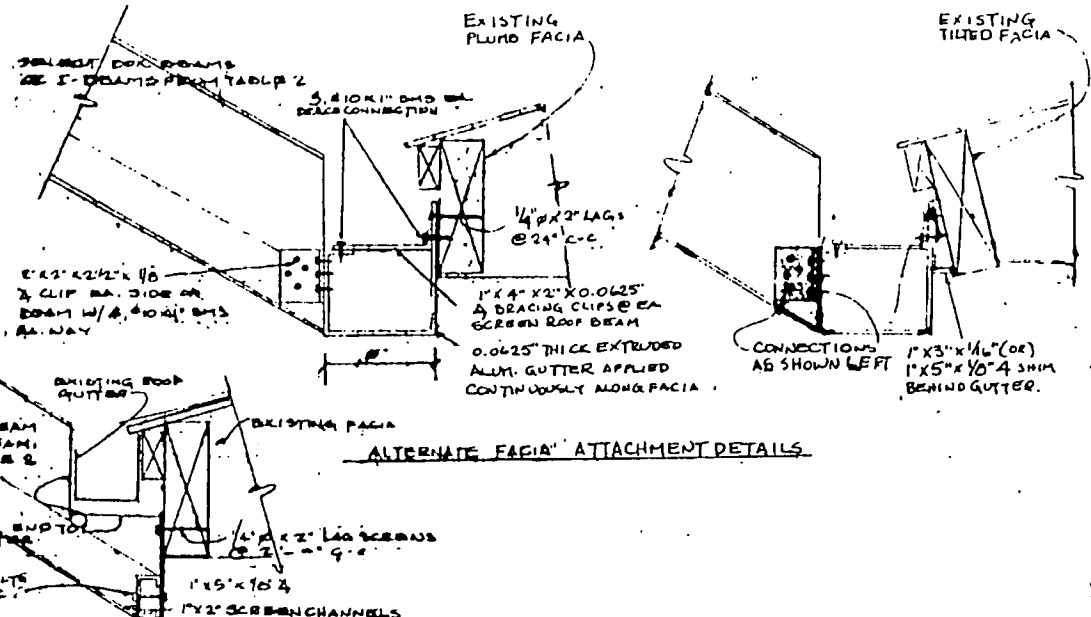 EXISTING
PLUMB FACIA
EXISTING
TILTED FACIA
BOX BEAMS
OR I-BEAMS FROM TABLE 2
3, #10 X 1" SMS EA.
CONNECTION
1/4" Ø X 2" LAGS
@ 24" C-C
2" X 2" X 2 1/2" X 1/8
∠ CLIP EA. SIDE OF
BEAM W/ 4, #10 SMS
EA. WAY
1" X 4" X 2" X 0.0625"
∠ BRACING CLIPS @ EA
SCREEN ROOF BEAM
0.0625" THICK EXTRUDED
ALUM. GUTTER APPLIED
CONTINUOUSLY ALONG FACIA
CONNECTIONS
AS SHOWN LEFT
1" X 3" X 1/16" (OR)
1" X 5" X 1/8" ∠ SHIM
BEHIND GUTTER.
ALTERNATE FACIA" ATTACHMENT DETAILS
EXISTING ROOF
GUTTER
EXISTING FACIA
2
END TO
1/4" Ø X 2" LAG SCREWS
1" X 5" X 1/8" ∠
1" X 2" SCREEN CHANNELS